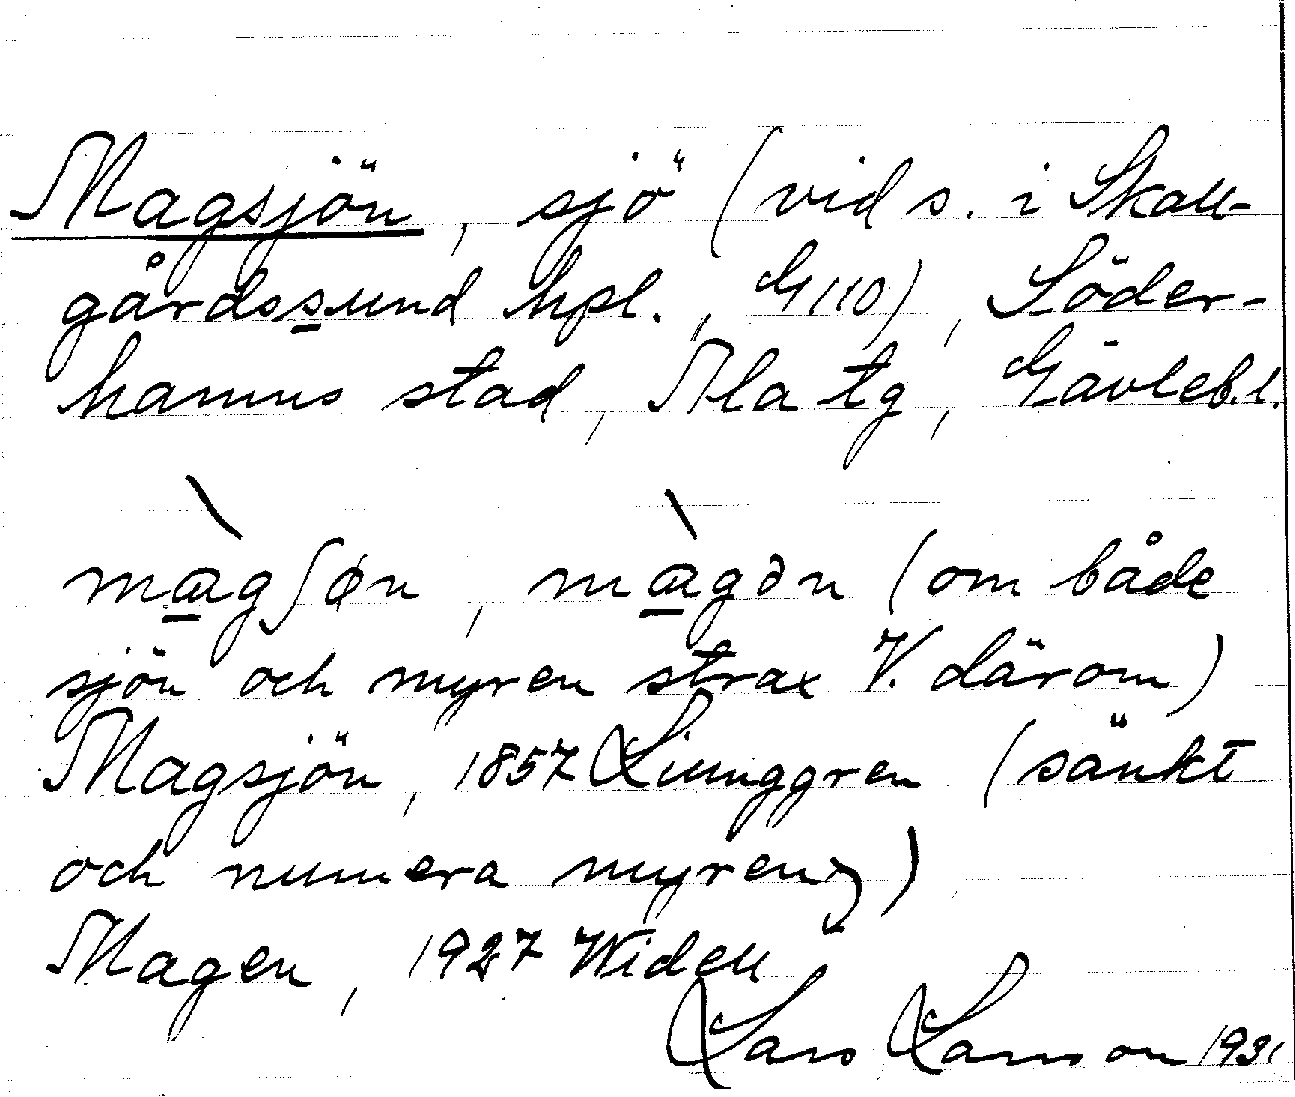 Magsjön, sjö (vid s. i Skall-
gårdssund hpl., G110), Söder-
hamns stad, Ala tg, Gävleb.l.
màgʃøn, màgən (om både
sjön och myren strax V. därom)
Magsjön, 1857 Ljunggren (sänkt
och numera myren)
Magen, 1927 Widell
Lars Larsson 1931